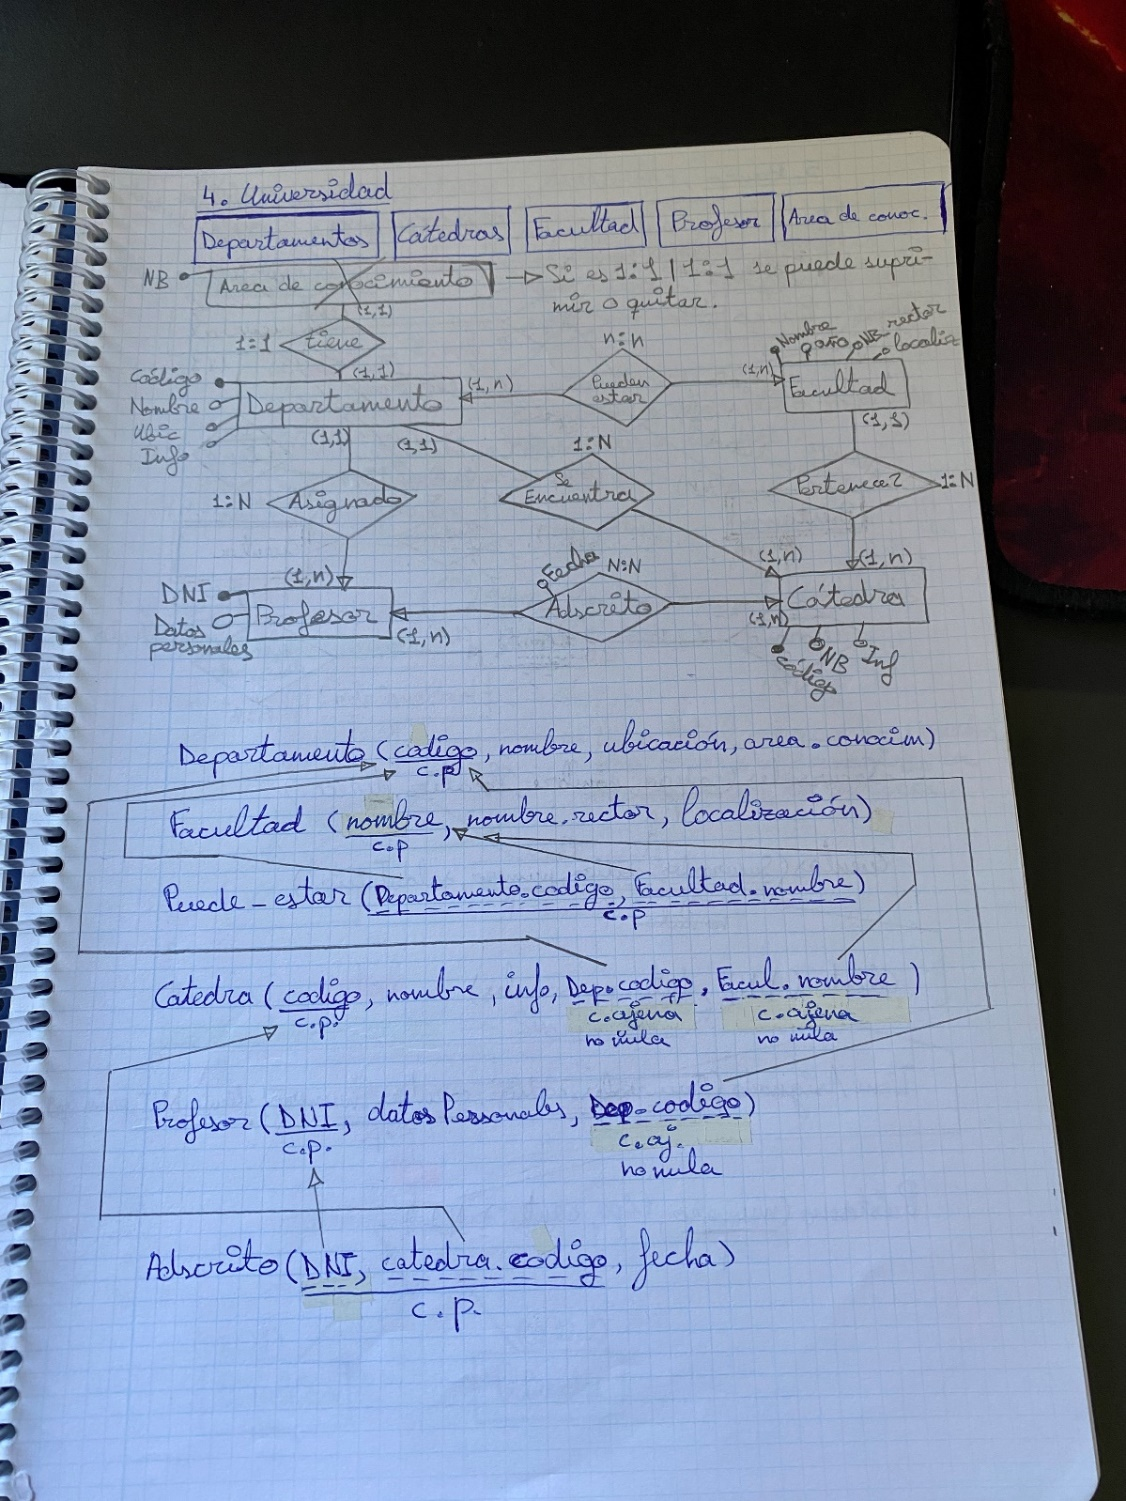 4. Universidad
Departamentos Catedras Facultad Profesor Area de conoc.
NB Area de conocimiento → Si es 1:1 | 1:1 se puede supri-
mir o quitar.
(1,1)
1:1 tiene
n:n
Nombre NB rector
localiz
(1,1)
Código
Nombre
Ubic
Info
Departamento (1,n) Pueden estar (1,n) Facultad
(1,1) (1,1) (1,1)
1:N
1:N Asignado Se Encuentra Pertenece 1:N
(1,n) (1,n) (1,n)
DNI
Datos
personales
Profesor (1,n) Fecha N:N Adscrito (1,n) Cátedra
código NB Inf
Departamento (codigo, nombre, ubicación, area.conocim)
c.p
Facultad (nombre, nombre.rector, localización)
c.p
Puede-estar (Departamento.codigo, Facultad.nombre)
c.p
Catedra (codigo, nombre, info, Dep.codigo, Facul.nombre)
c.p. c.ajena c.ajena
no nula no nula
Profesor (DNI, datos Personales, Dep.codigo)
c.p. c.aj.
no nula
Adscrito (DNI, catedra.codigo, fecha)
c.p.